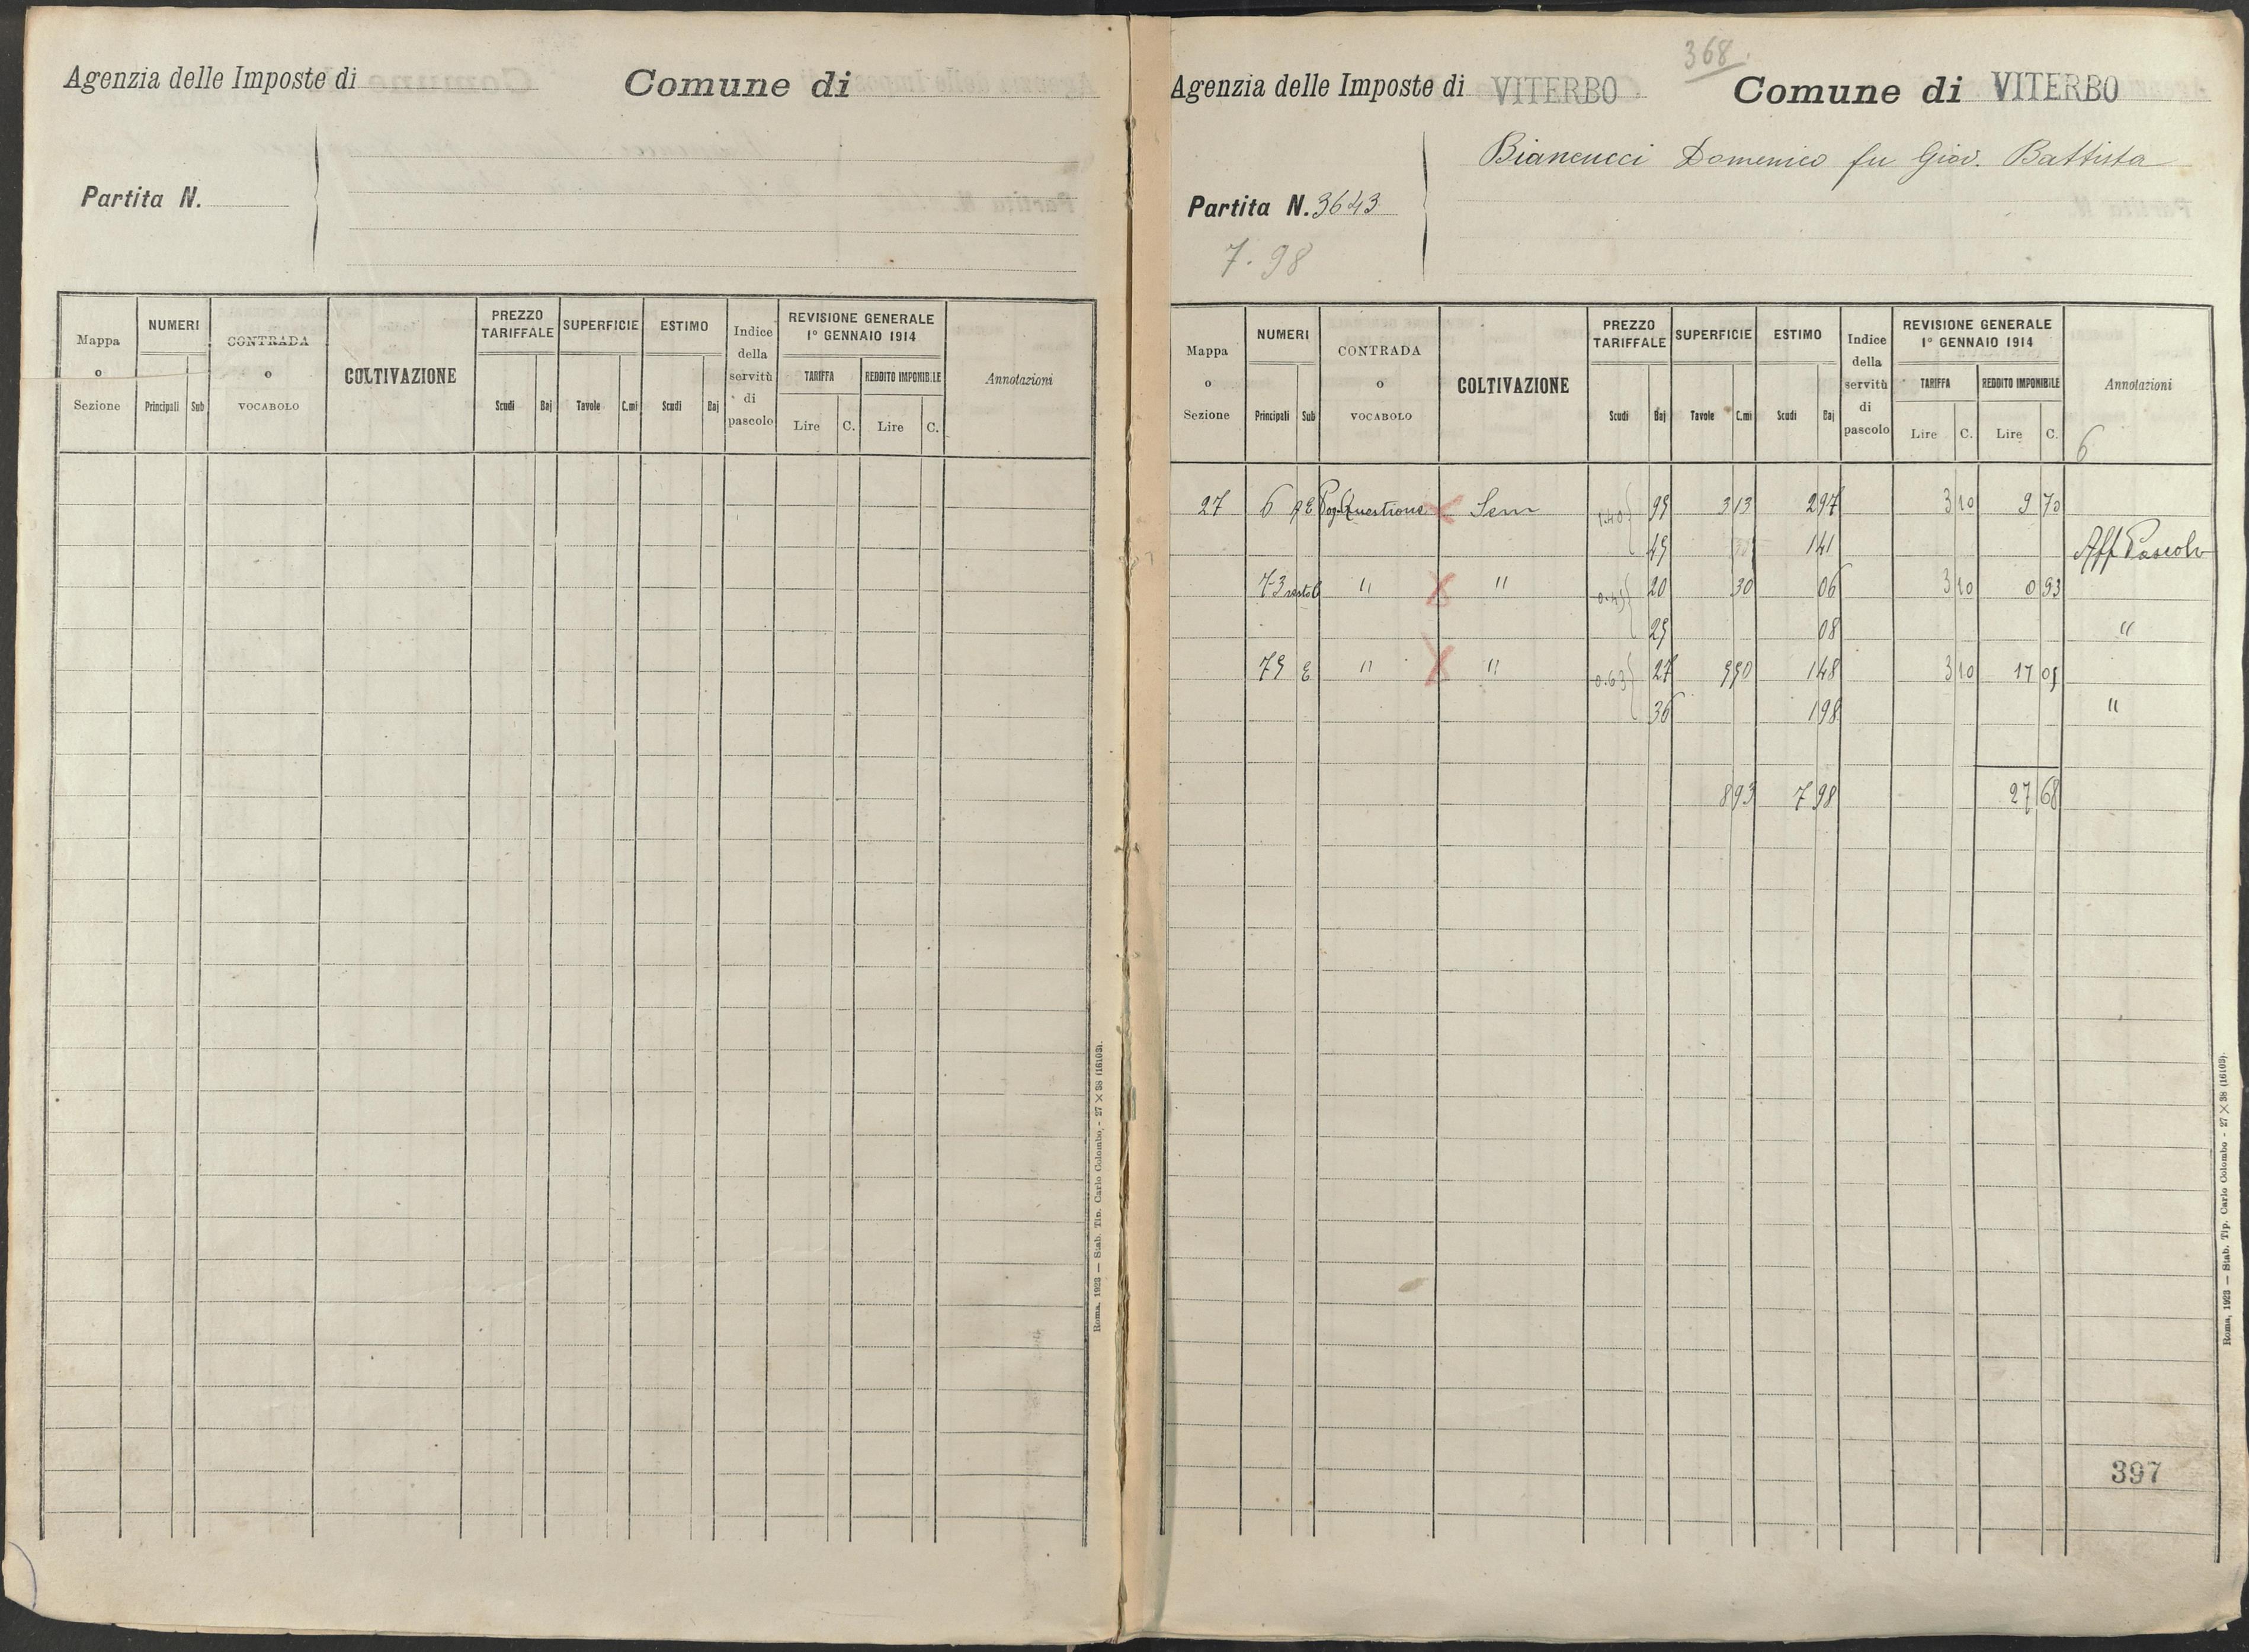 Agenzia delle Imposte di
Comune di
Partita N.
Mappa o Sezione
NUMERI
Principali Sub
CONTRADA o VOCABOLO
COLTIVAZIONE
PREZZO TARIFFALE
Scudi Baj
SUPERFICIE
Tavole C.mi
ESTIMO
Scudi Baj
Indice della servitù di pascolo
REVISIONE GENERALE
1° GENNAIO 1914
TARIFFA
Lire C.
REDDITO IMPONIBILE
Lire C.
Annotazioni
Roma, 1923 — Stab. Tip. Carlo Colombo, - 27 × 38 (16103).
368.
Agenzia delle Imposte di VITERBO
Comune di VITERBO
Biancucci Domenico fu Giov. Battista
Partita N. 3643
7.98
Mappa o Sezione
NUMERI
Principali Sub
CONTRADA o VOCABOLO
COLTIVAZIONE
PREZZO TARIFFALE
Scudi Baj
SUPERFICIE
Tavole C.mi
ESTIMO
Scudi Baj
Indice della servitù di pascolo
REVISIONE GENERALE
1° GENNAIO 1914
TARIFFA
Lire C.
REDDITO IMPONIBILE
Lire C.
Annotazioni
6
27 6 Questione Sem 95 3 13 2 97 3 10 9 70
45 1 41 Aff Pascolo
73 resto " " 20 30 06 3 10 0 93
25 08 "
75 " " 0.63 27 5 50 1 48 3 10 17 05
36 1 98 "
8 93 7 98 27 68
397
Roma, 1923 — Stab. Tip. Carlo Colombo - 27 × 38 (16103).